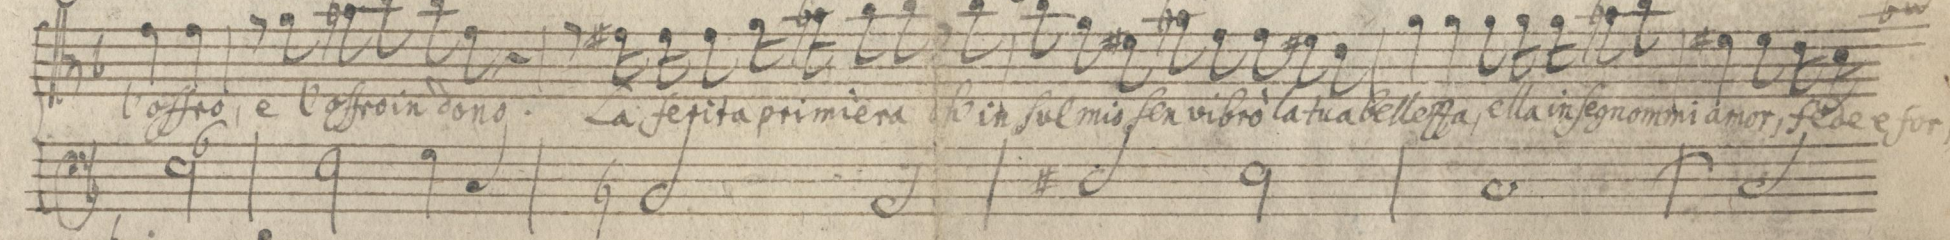 l'offro, e l'offro in dono. La ferita primiera in sul mio sen vibrò la tua bellezza, ella insegnommi amor, fede e for,
6
6